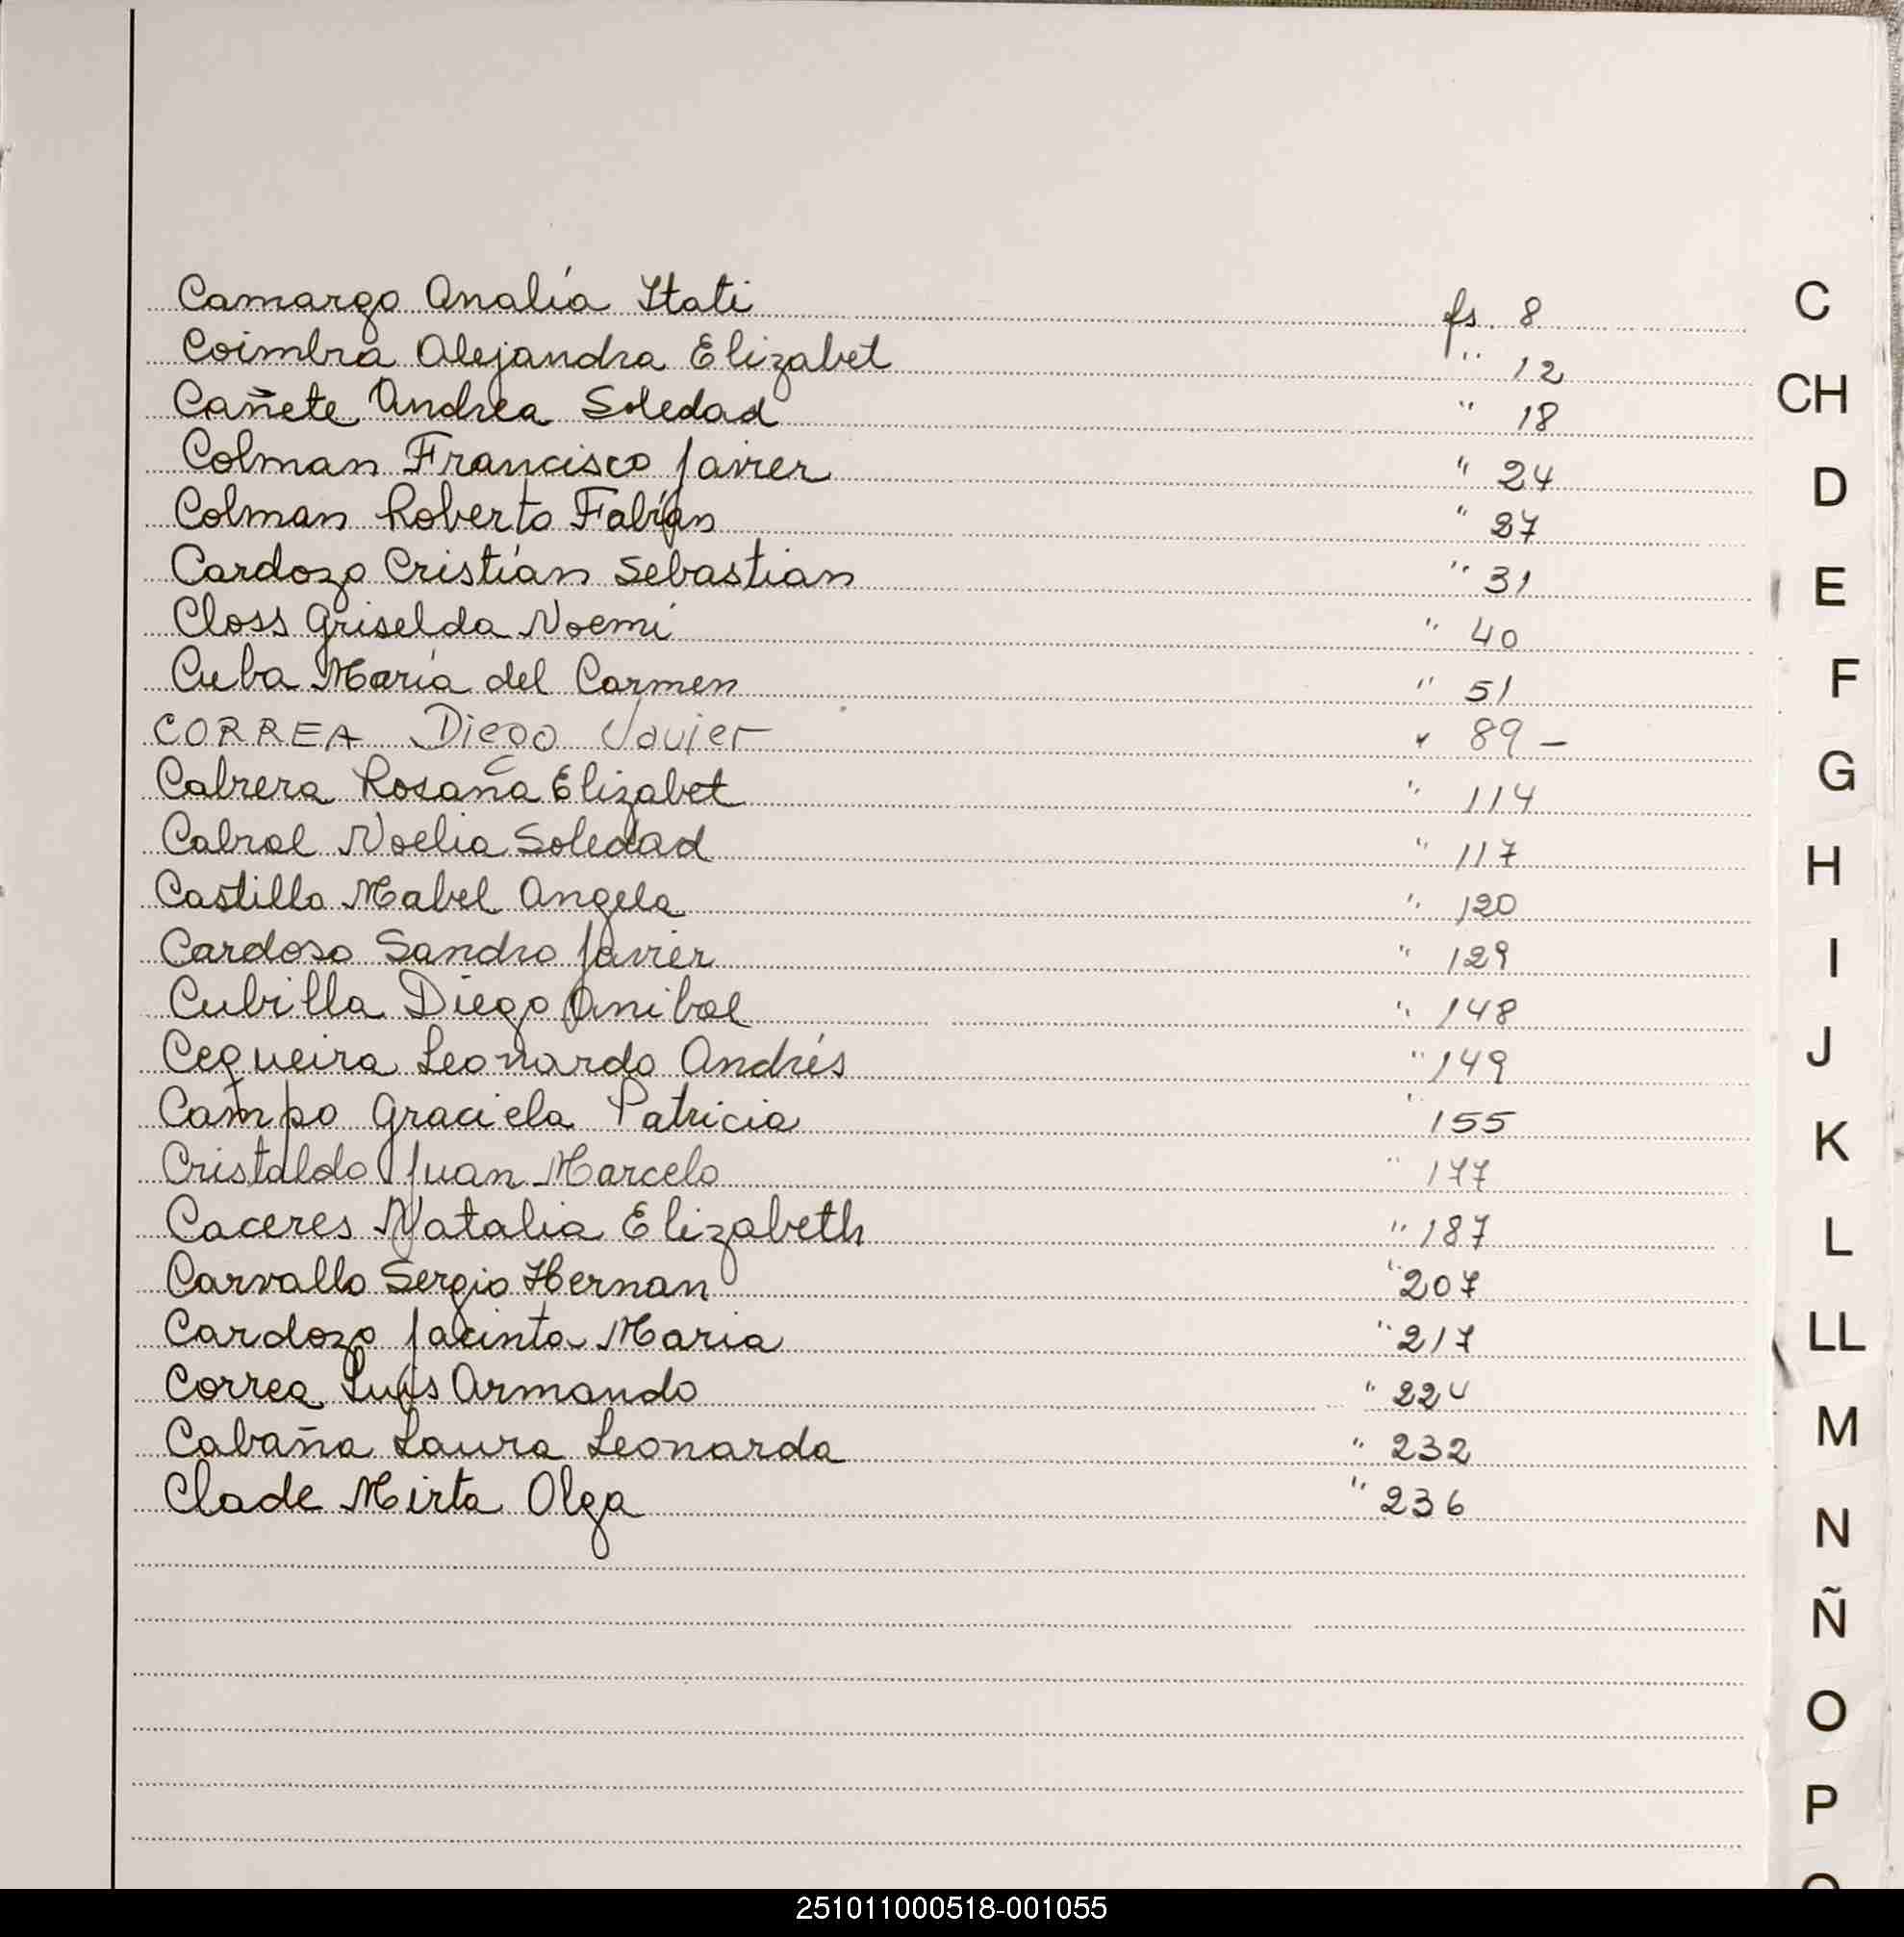 Camargo Analía Itati fs. 8
Coimbra Alejandra Elizabet " 12
Cañete Andrea Soledad " 18
Colman Francisco Javier " 24
Colman Roberto Fabián " 27
Cardozo Cristián Sebastian " 31
Closs Griselda Noemí " 40
Cuba María del Carmen " 51
CORREA Diego Javier " 89 -
Cabrera Rosana Elizabet " 114
Cabral Noelia Soledad " 117
Castillo Mabel Angela " 120
Cardoso Sandro Javier " 129
Cubilla Diego Anibal " 148
Cequeira Leonardo Andrés " 149
Campo Graciela Patricia " 155
Cristaldo Juan Marcelo " 177
Caceres Natalia Elizabeth " 187
Carvallo Sergio Hernan " 207
Cardozo Jacinta Maria " 217
Correa Luis Armando " 224
Cabaña Laura Leonarda " 232
Clade Mirta Olga " 236
C
CH
D
E
F
G
H
I
J
K
L
LL
M
N
Ñ
O
P
251011000518-001055